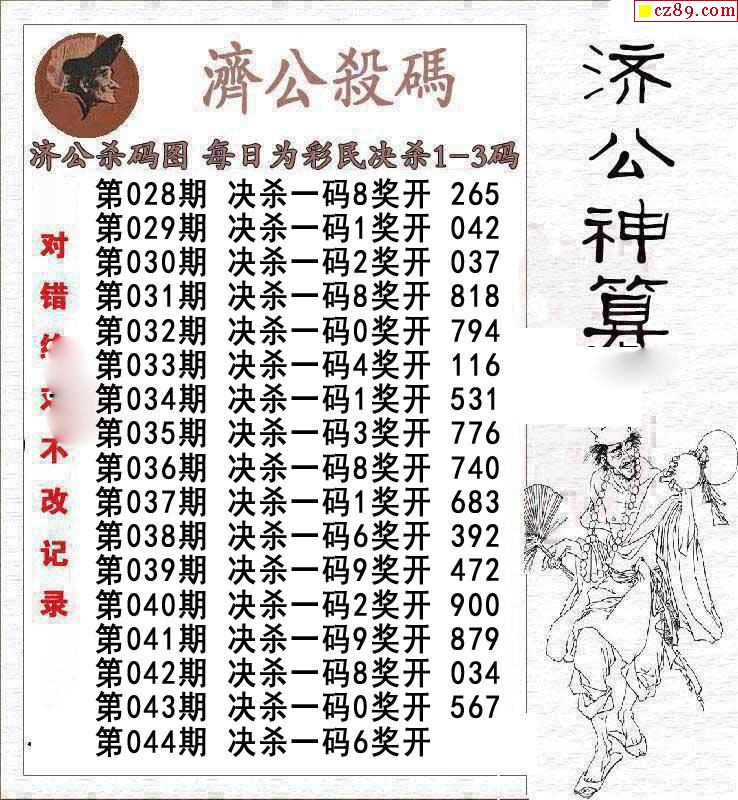 cz89.com
濟公殺碼
济公杀码图 每日为彩民决杀1-3码
第028期 决杀一码8奖开 265
第029期 决杀一码1奖开 042
第030期 决杀一码2奖开 037
第031期 决杀一码8奖开 818
第032期 决杀一码0奖开 794
第033期 决杀一码4奖开 116
第034期 决杀一码1奖开 531
第035期 决杀一码3奖开 776
第036期 决杀一码8奖开 740
第037期 决杀一码1奖开 683
第038期 决杀一码6奖开 392
第039期 决杀一码9奖开 472
第040期 决杀一码2奖开 900
第041期 决杀一码9奖开 879
第042期 决杀一码8奖开 034
第043期 决杀一码0奖开 567
第044期 决杀一码6奖开
对错不改记录
济公神算